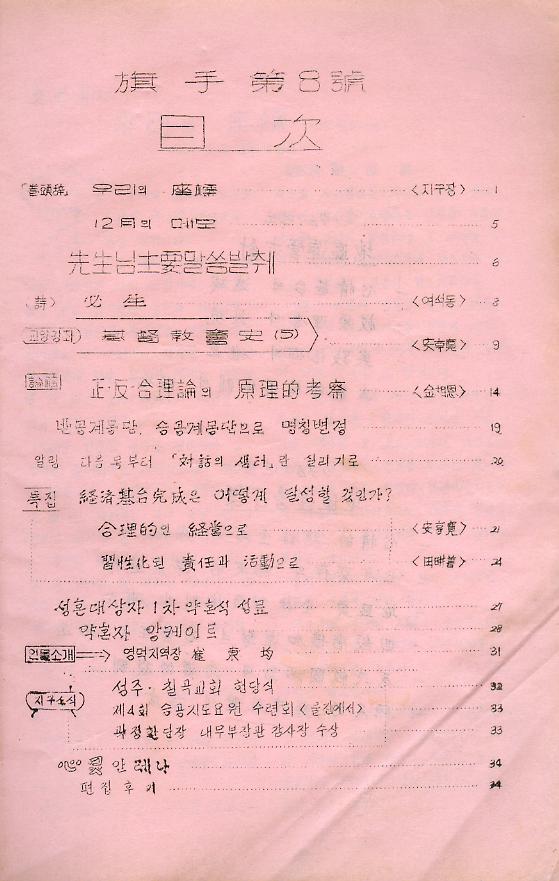 旗手 第8號
目次
「卷頭焼」 우리의 座標 〈지구장〉 1
12月의 메모 5
先生님主要말씀발췌 6
〈詩〉 必生 〈여석동〉 8
교양강좌 基督敎會史(5) 〈安享寬〉 9
正·反·合理論의 原理的考察 〈金相恩〉 14
반공계몽단, 승공계몽단으로 명칭변경 19
알림 다음호부터 「対話의 샘터」란 설치키로 20
특집 経済基台完成은 어떻게 달성할 것인가?
合理的인 経営으로 〈安享寬〉 21
習性化된 責任과 活動으로 24
성혼대상자 1차 약혼식 성료 27
약혼자 앙케이트 28
인물소개 영덕지역장 崔東均 31
지구소식 성주·칠곡교회 헌당식 32
제4회 승공지도요원 수련회〈울진에서〉 33
과정환단장 내무부장관 감사장 수상 33
안테나 34
편집후기 34